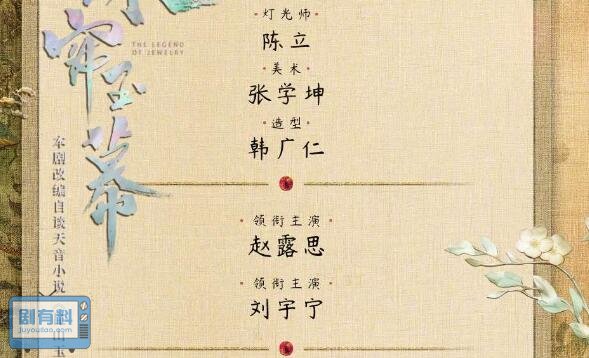 帘玉幕
THE LEGEND
OF JEWELRY
本剧改编自谈天音小说
灯光师
陈立
美术
张学坤
造型
韩广仁
领衔主演
赵露思
领衔主演
刘宇宁
剧有料
juyouliao.com